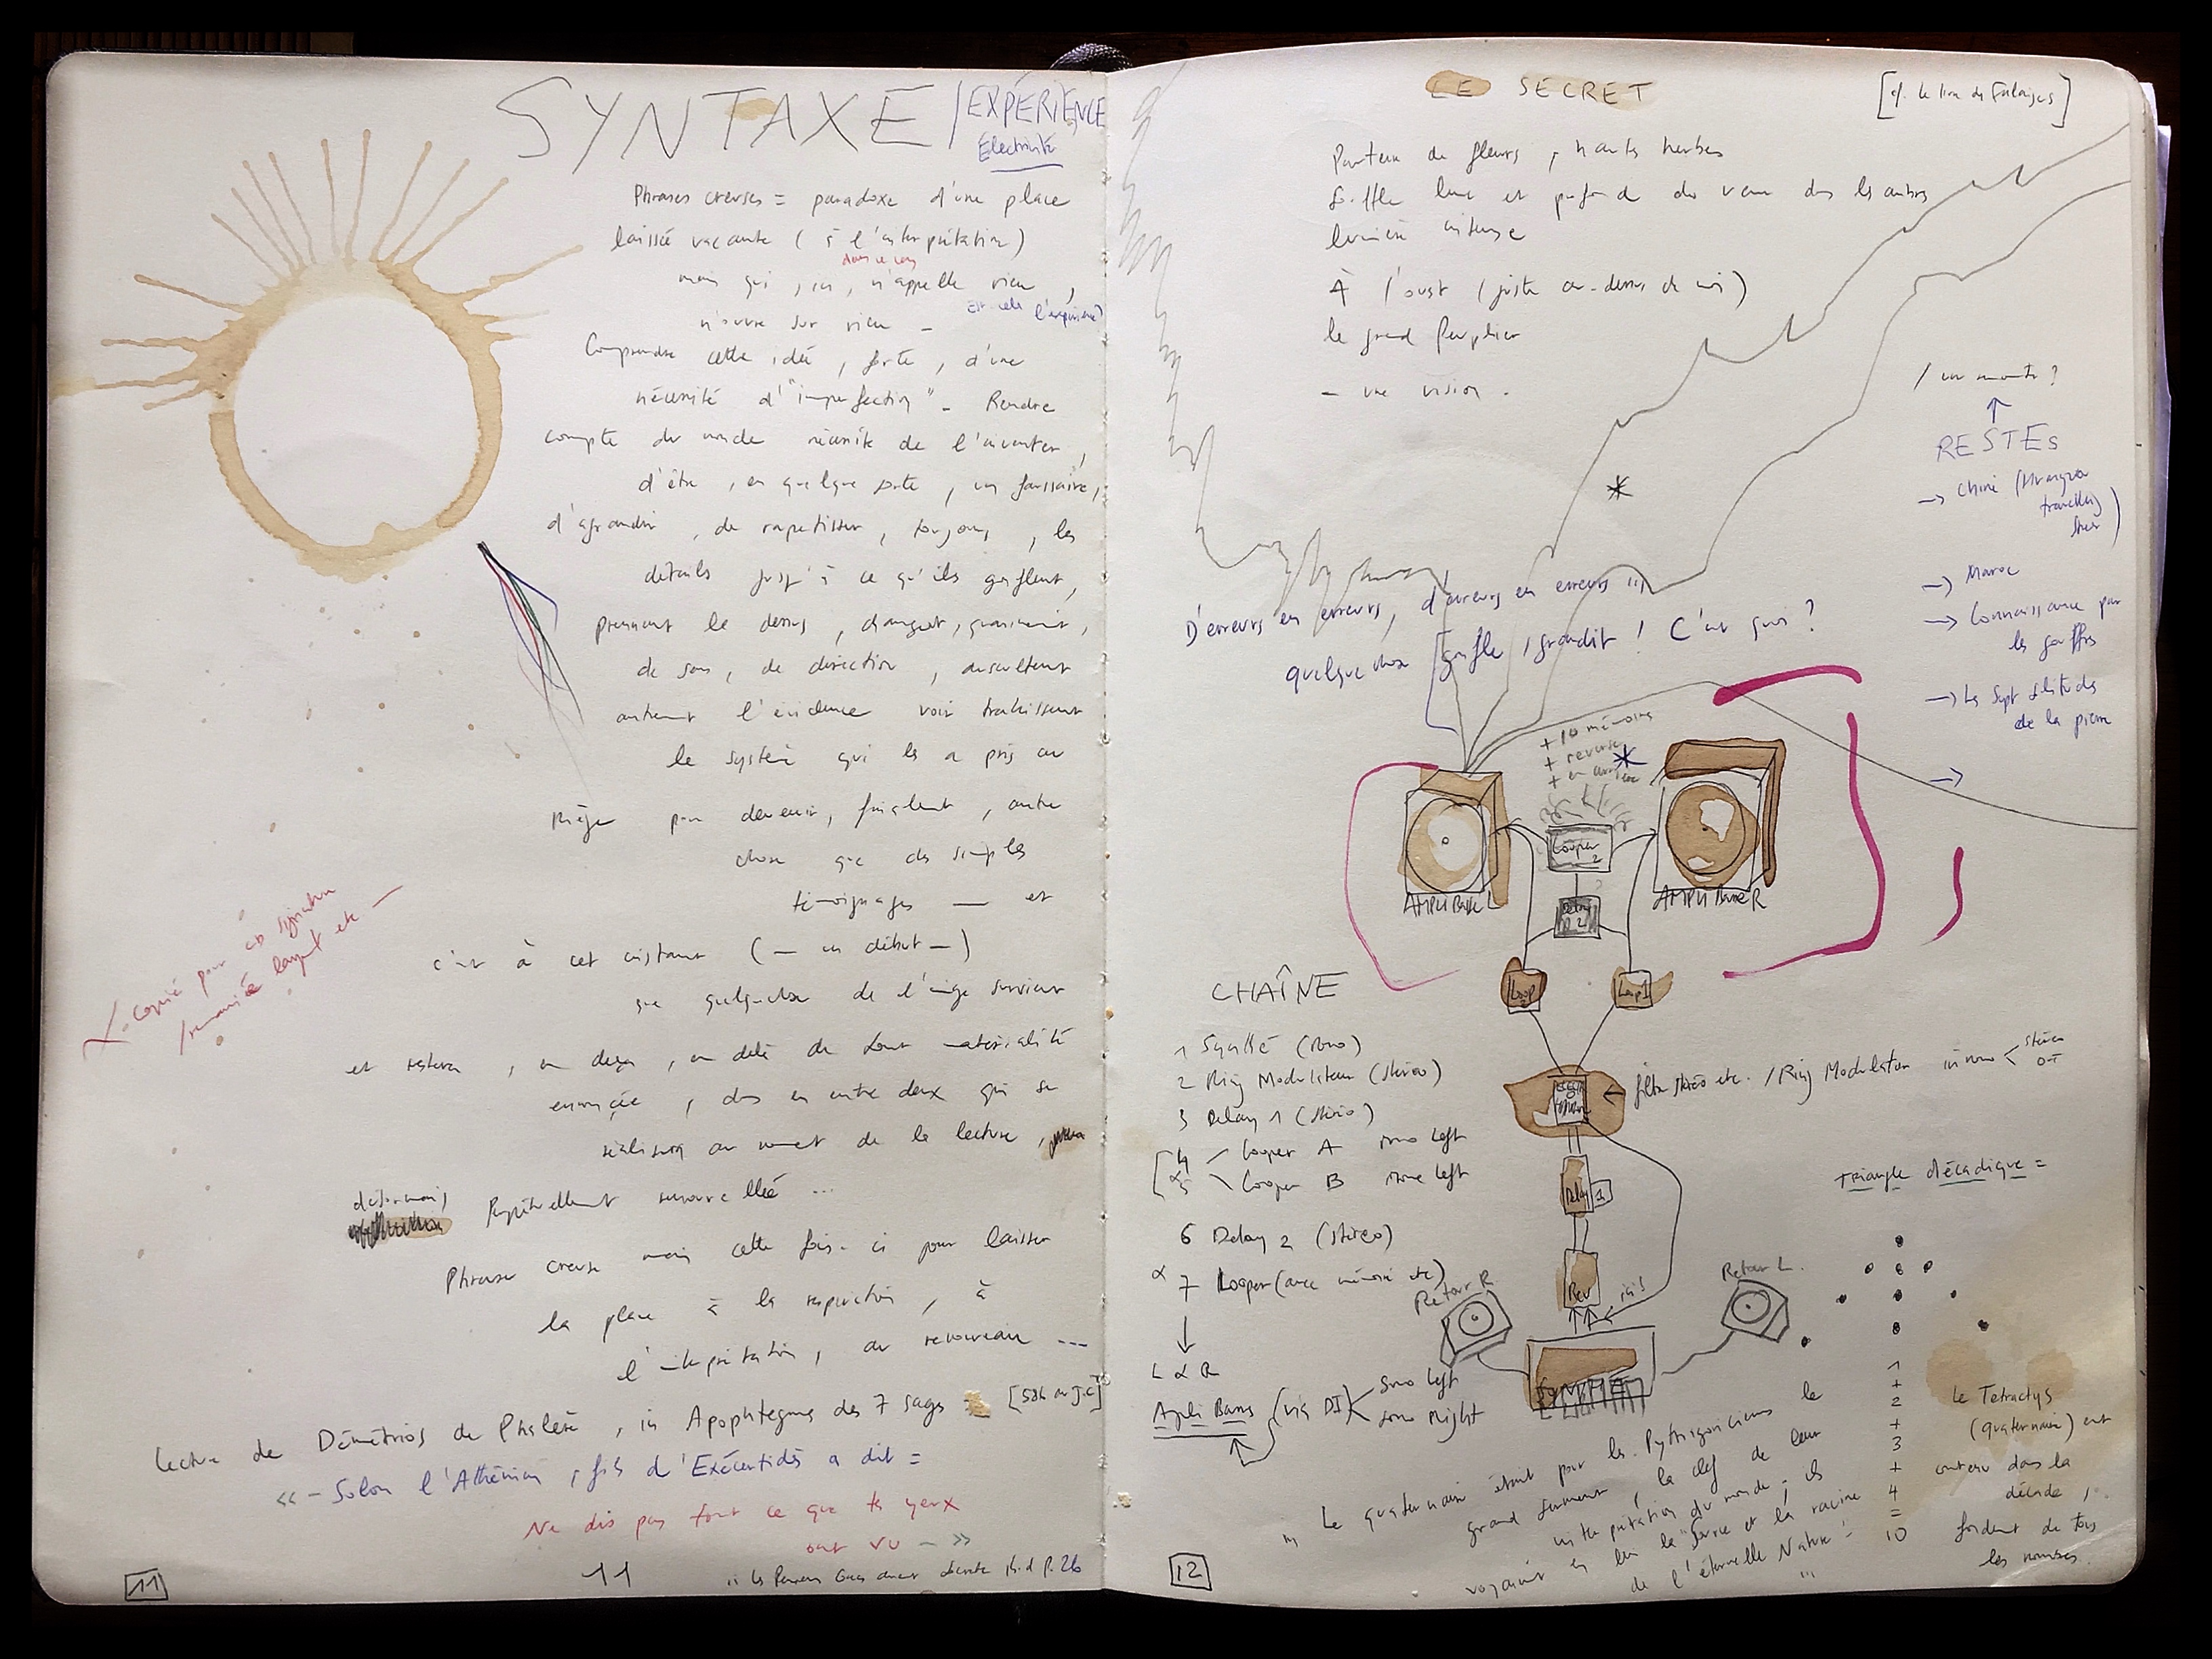 SYNTAXE / EXPÉRIENCE
Electricité
Phrases creuses = paradoxe d'une place
laissée vacante ( à l'interprétation )
dans ce cas
mais qui , ici , n'appelle rien ,
n'ouvre sur rien –
Est-cela l'expérience ?
Comprendre cette idée , forte , d'une
nécessité d'"imperfection" – Rendre
compte du monde nécessite de l'inventer ,
d'être , en quelque sorte , un faussaire ,
d'agrandir , de rapetisser , toujours , les
détails jusqu'à ce qu'ils gonflent ,
prennent le dessus , changent ,
de sens , de direction , auscultent
autrement l'évidence voir trahissent
le système qui les a pris au
piège pour devenir , finalement , autre
chose que de simples
témoignages — et
c'est à cet instant ( – un début – )
que quelque chose de l'image survient
et restera , en deça , au delà de toute matérialité
énoncée , dans un entre deux qui se
réalisera au moment de la lecture ,
désormais
Perpétuellement renouvellée ...
Phrase creuse mais cette fois-ci pour laisser
la place à la respiration , à
l'interprétation , au renouveau ---
Lecture de Démétrios de Phalère , in Apophtegmes des 7 sages
« – Solon l'Athénien , fils d'Exécestidès a dit =
Ne dis pas tout ce que tes yeux
ont vu – »
11
11
copié pour
LE SECRET
[ cf. le livre des Falaises ]
de fleurs , hautes herbes
Souffle lent et profond du vent dans les arbres
lumière intense
À l'ouest ( juste au-dessus de moi )
le grand Peuplier
– une vision .
/ un monte ?
RESTES
→ Chine
→ Maroc
→ Connaissance par
les gouffres
→ Les Sept solitudes
de la pierre
→
D'erreurs en erreurs, d'erreurs en erreurs !!!
quelque chose gonfle , grandit ! C'est quoi ?
+ 10 mémoires
+ reverse
Looper 2
AMPLI BASSE L
AMPLI BASSE R
Delay 2
Loop 2
Loop 1
← filtre stéréo etc. / Ring Modulator in mono < stéréo out
Delay 1
Rev
Retour R
Retour L
SYNTHÉ
CHAÎNE
1 Synthé (mono)
2 Ring Modulateur (stéréo)
3 Delay 1 (stéréo)
4 – Looper A mono left
5 \ Looper B mono left
6 Delay 2 (stéréo)
α 7 Looper (avec mémoire etc)
↓
L α R
Ampli Basses (via DI) < Mono left
Mono Right
Triangle décadique =
1
+
2
+
3
+
4
=
10
Le Tetractys
(quaternaire) est
contenu dans la
décade ,
fondement de tous
les nombres.
Le quaternaire était pour les Pythagoriciens le
grand serment , la clef de leur
interprétation du monde ; ils
voyaient en lui la "source et la racine
de l'éternelle Nature"
12